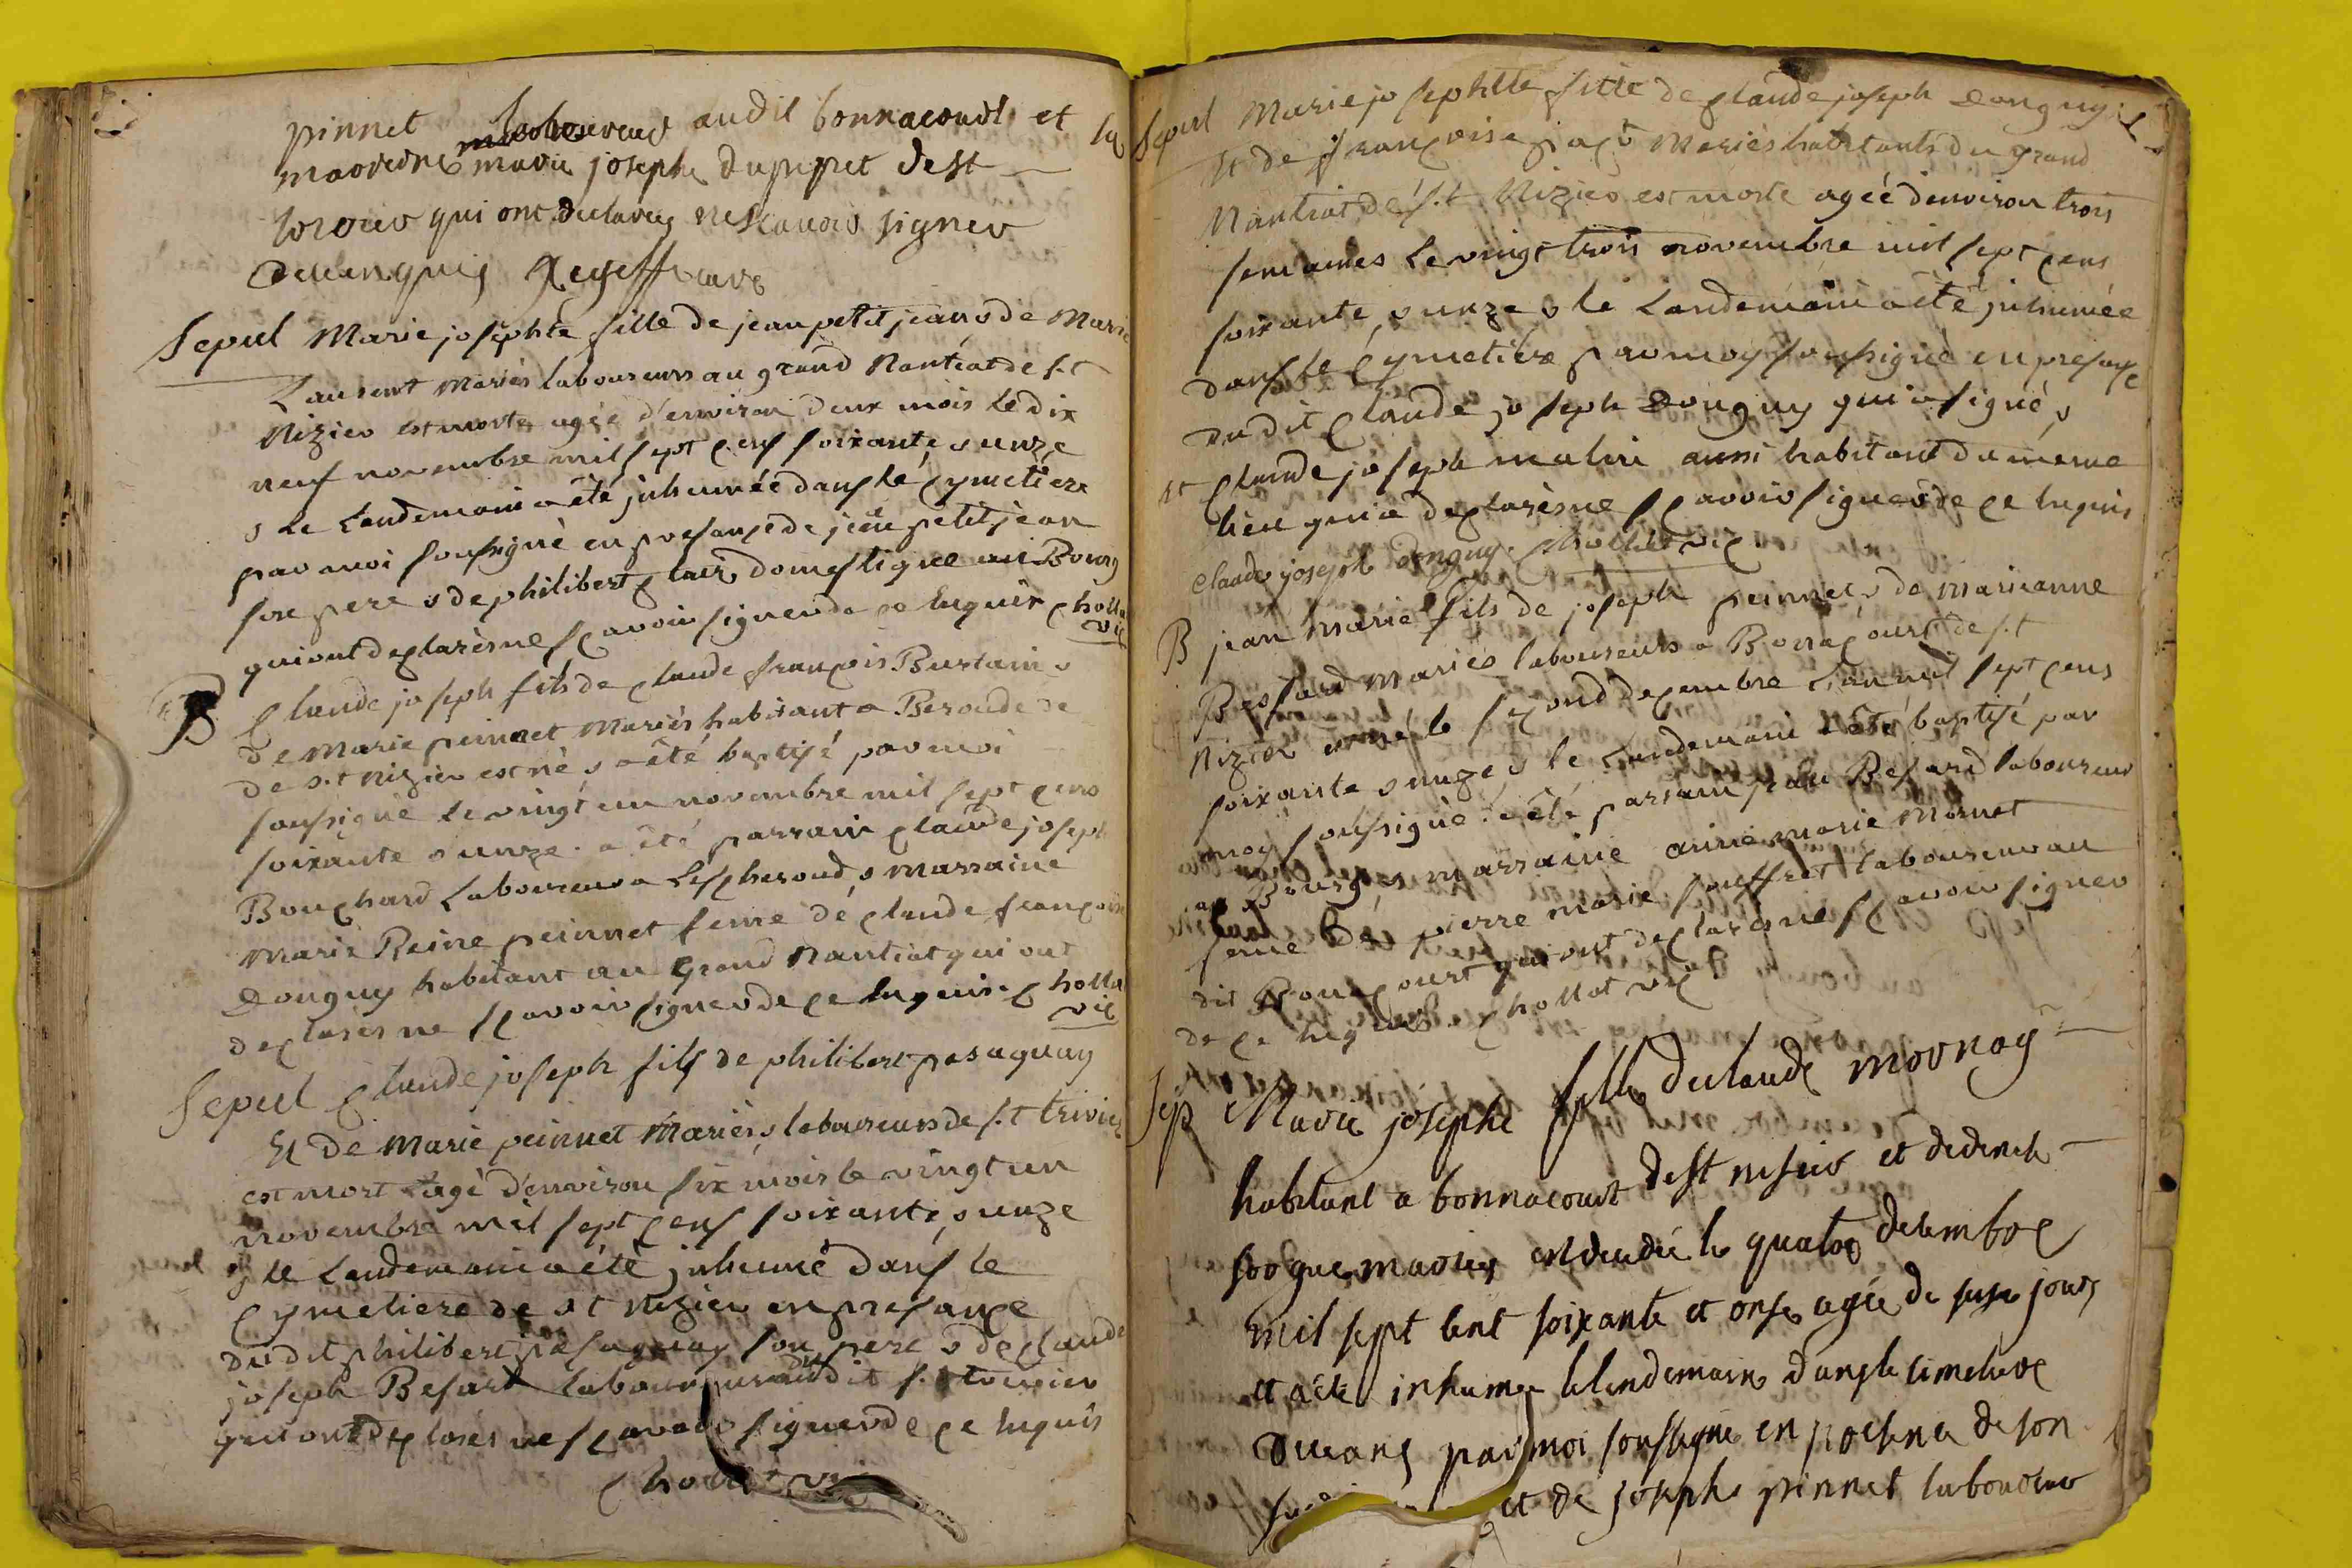 pinnet laboureur audit bonnacourt et sa
marreine marie josephe dupupet de st
qui ont declarez ne scavoir signer
de ce enquis

Sepul Marie josephte fille de jean petit jean & de Marie
Laurent Mariés laboureurs au grand Nantiat de s.t
Nizier est morte agée d'environ deux mois le dix
neuf novembre mil sept cens soixante & unze
& le Landemain a été inhumée dans le cymetiere
par moi soussigné en presançe de jean petit jean
son pere & de philibert clair domestique au Bourg
qui ont declarés ne sçavoir signer de ce requis cholla
vic
B Claude joseph fils de claude françois Burtain &
de Marie peinnet Mariés habitant a Beroude de
de s.t Nizier est né & a été baptisé par moi
soussigné le vingt un novembre mil sept cens
soixante & unze. a été parrain claude joseph
Bouchard Laboureur a Lescheroud & marraine
Marie Reine peinnet feme de claude françois
Donguy habitant au Grand Nantiat qui ont
declarés ne sçavoir signer de ce requis. cholla
vic
Sepul Claude joseph fils de philibert pasaguay
Et de Marie peinnet Mariés & laboureurs de s.t trivier
est mort agé d'environ six mois le vingt un
novembre mil sept cens soixante & unze
& le Landemain a été inhumé dans le
cymetiere de st Nizier en presançe
dudit philibert pasaguay son pere & de claude
joseph Besard laboureur audit s.t trivier
qui ont declarés ne sçavoir signer de ce requis
chollat vic
Sepul Marie josephtte fille de claude joseph Donguy
Et de françoise Mariés habitants du grand
Nantiat de s.t Nizier est morte agée d'environ trois
semaines le vingt trois novembre mil sept cens
soixante & unze & le Landemain a été inhumée
dans le cymetiere par moy soussigné en presançe
dudit Claude joseph Donguy qui a signé &
et Claude joseph mathi aussi habitant du meme
lieu qui a declarés ne sçavoir signer de ce requis
claude joseph donguy. chollat vic
B jean Marie fils de joseph peinnet & de Marieanne
Bessard Mariés laboureurs a Bonacourt de s.t
Nizier est né le second decembre L'an mil sept cens
soixante & unze & le Landemain a été baptisé par
moy soussigné. a été parrain Besard laboureur
au Bourg & marraine anne marie Mornet
feme de pierre marie laboureur au
dit Bonacourt qui ont declarés ne sçavoir signer
de ce requis. chollat vic
Sep Marie josephe fille de claude mornay
habitant a bonnacourt de st nisier et de denise
mariez est decedée le quatre decembre
mil sept cent soixante et onse agée de jours
et a été inhumée le lendemain dans le simetiere
par moi soussigné en presence de son
et de joseph pinnet laboureur